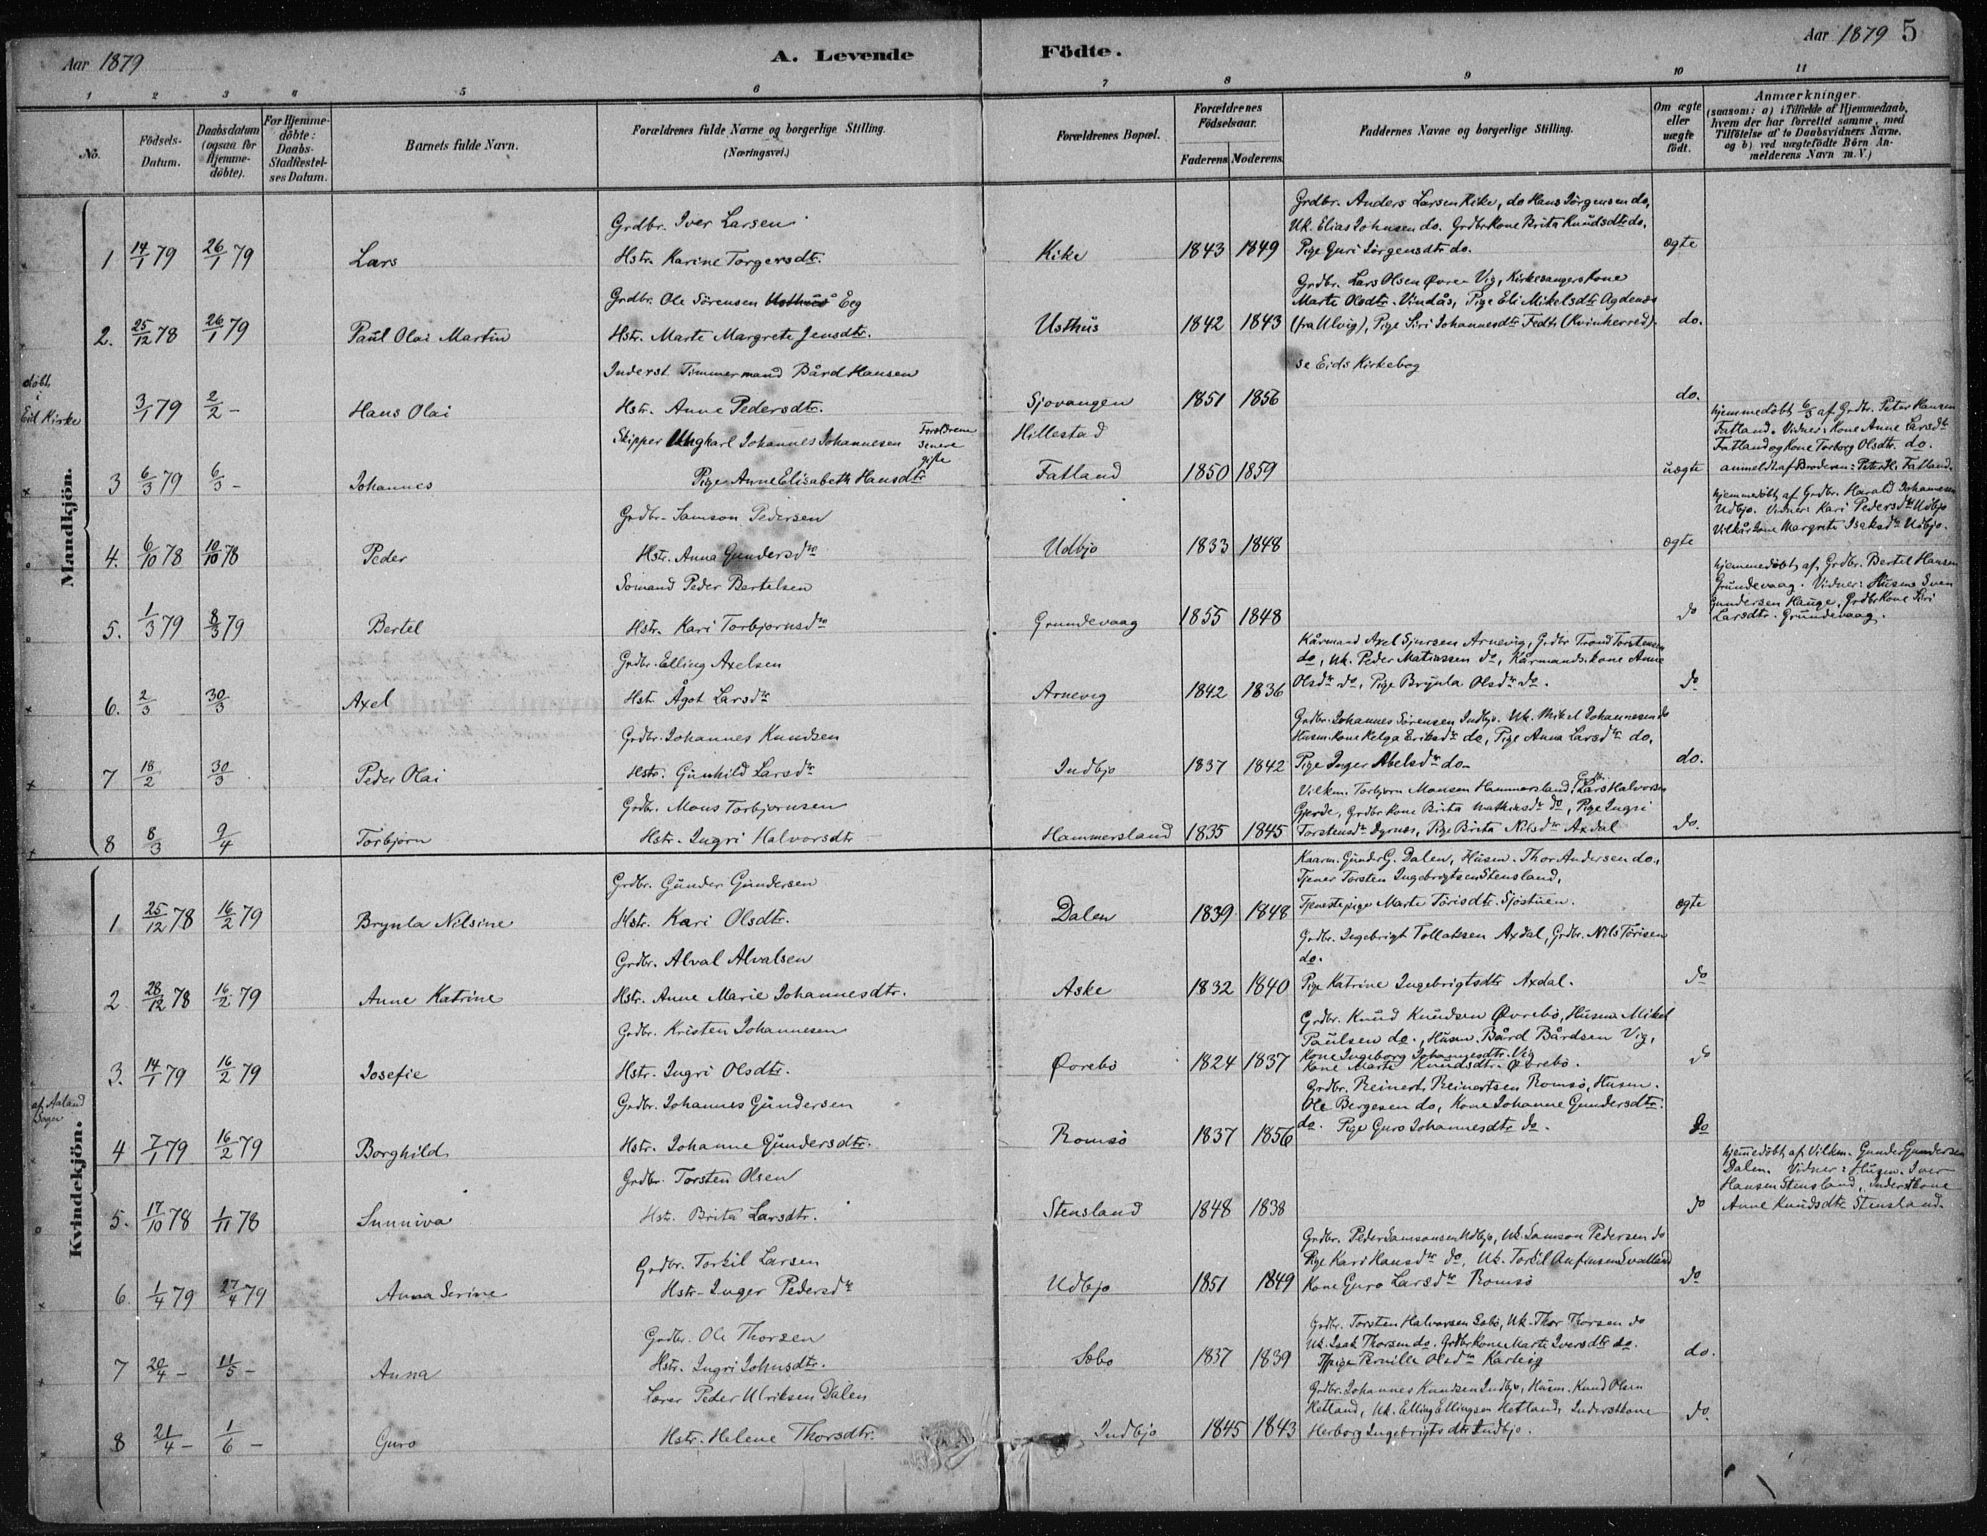 Aar 1879
A. Levende Födte.
Aar 1879 5
1 2 3 4 5 6 7 8 9 10 11
No.
Födsels-Datum.
Daabsdatum (ogsaa for Hjemme-döbte).
For Hjemme-döbte: Daabs-Stadfæstel-ses Datum.
Barnets fulde Navn.
Forældrenes fulde Navne og borgerlige Stilling.
(Næringsvei.)
Forældrenes Bopæl.
Forældrenes Födselsaar.
Faderens. Moderens.
Faddernes Navne og borgerlige Stilling.
Om ægte eller uægte födt.
Anmærkninger.
(saasom: a) i Tilfælde af Hjemmedaab, hvem der har forrettet samme, med Tilföielse af to Daabsvidners Navne, og b) ved uægtefödte Börn An-melderens Navn m.V.)
Mandkjön.
Grdbr. Iver Larsen
Grdbr. Anders Larsen Kike, do Hans Jörgensen do,
Uk. Elias Johnsen do. Grdbrkone Brita Knudsdtr do,
1 14/1 79 26/1 79 Lars Hstr. Karine Torgersdtr. Kike 1843 1849 Pige Guri Jörgensdtr do. ægte
Grdbr. Ole Sörensen Usthus Eeg
Grdbr. Lars Olsen Övre-Vig, Kirkesangerkone
Marte Olsdtr. Vindås, Pige Eli Mikelsdtr Agdenæs
2. 25/12 78 26/1 79 Paul Olai Martin Hstr. Marte Margrete Jensdtr. Usthus 1842 1843 (fra Ulvig), Pige Siri Johannesdtr Fedt (Kvinherred). do.
döbt i Eid Kirke
Inderst Timmermand Bård Hansen
se Eids Kirkebog
3/1 79 2/2 - Hans Olai Hstr. Anne Pedersdtr. Sjovangen 1851 1856 do.
Skipper Ungkarl Johannes Johannesen Forældrene senere gifte Hillestad
hjemmedöbt 6/3 af Grdbr. Peter Hansen
Fatland. Vidner: Kone Anne Larsdtr
Fatland og Kone Torborg Olsdtr. do.
3 6/3 79 6/3 - Johannes Pige Anne Elisabeth Hansdtr Fatland 1850 1859 uægte anmeldt af Broderen: Peter H. Fatland.
Grdbr. Samson Pedersen
hjemmedöbt af Grdbr. Harald Johannesen
Udbjo. Vidner: Kari Pedersdtr Udbjo
Vilkårkone Margrete Isaksdtr Udbjo.
4. 6/10 78 10/10 78 Peder Hstr. Anna Gundersdtr Udbjo 1833 1848 ægte
Somand Peder Bertelsen
hjemmedöbt af Grdbr. Bertel Hansen
Grundevaag. Vidner: Husm Sven
Gundersen Hauge, Grdbrkone Siri
5. 1/3 79 8/3 79 Bertel Hstr. Kari Torbjornsdtr Grundevaag 1855 1848 do Larsdtr. Grundevaag.
Grdbr. Elling Axelsen
Kårmand Axel Sjursen Arnevig, Grdbr Trond Torstensen
do, Uk. Peder Matiassen do, Kårmandskone Anne
6. 2/3 30/3 Axel Hstr. Ågot Larsdtr Arnevig 1842 1836 Olsdtr do, Pige Brynla Olsdtr do. do
Grdbr. Johannes Knudsen
Grdbr. Johannes Sörensen Indbjo. Uk. Mikel Johannesen do
Husm.kone Helga Eriksdtr do, Pige Anna Larsdtr do,
7 18/2 30/3 Peder Olai Hstr. Gunhild Larsdtr Indbjo 1837 1842 Pige Inger Abelsdtr do- do.
Grdbr. Mons Torbjornsen
Vilkm. Torbjorn Monsen Hammersland, Grdbr. Lars Halvorsen
Gjerde, Grdbrkone Brita Mathiasdtr do, Pige Ingri
8 8/3 9/4 Torbjorn Hstr. Ingri Halvorsdtr Hammersland 1835 1845 Torstensdtr Dyrnes, Pige Brita Nilsdtr Axdal do.
Kvindekjön.
Grdbr. Gunder Gundersen
Kaarm. Gunder G. Dalen, Husm. Thor Andersen do.,
Tjener Torsten Ingebrigtsen Stensland,
1 25/12 78 16/2 79 Brynla Nilsine Hstr. Kari Olsdtr. Dalen 1839 1848 Tjenestepige Marte Torisdtr. Sjöstuen. ægte
Grdbr. Alval Alvalsen
Grdbr. Ingebrigt Tollaksen Axdal, Grdbr. Nils Torisen
do.
2 28/12 78 16/2 79 Anne Katrine Hstr. Anne Marie Johannesdtr. Aske 1832 1840 Pige Katrine Ingebrigtsdtr Axdal. do
Grdbr. Kristen Johannesen
Grdbr. Knud Knudsen Övrebö, Husm. Mikel
Paulsen do., Husm. Bård Bårdsen Vig,
Kone Ingeborg Johannesdtr. Vig
3. 14/1 79 16/2 79 Josefie Hstr. Ingri Olsdtr. Övrebö 1824 1837 Kone Marte Knudsdtr. Övrebö. do
af Aaland Sogn
Grdbr. Johannes Gundersen
Grdbr. Reinert Reinertsen Romsö, Husm.
Ole Bergesen do, Kone Johanne Gundersdtr.
4 7/1 79 16/2 79 Borghild Hstr. Johanne Gundersdtr. Romsö 1837 1856 do. Pige Guro Johannesdtr do. do
Grdbr. Torsten Olsen
hjemmedöbt af Vilkm. Gunder Gundersen
Dalen. Vidner: Husm. Iver
Hansen Stensland, Inderstkone
5. 17/10 78 1/11 78 Sunniva Hstr. Brita Larsdtr. Stensland 1848 1838 do Anne Knudsdtr Stensland.
Grdbr. Torkil Larsen
Grdbr. Peder Samsonsen Udbjo, Uk. Samson Pedersen do
Pige Kari Hansdtr do, Uk. Torkil Anfinsen Svalland
6. 1/4 79 27/4 79 Anna Serine Hstr. Inger Pedersdtr Udbjo 1851 1849 Kone Guro Larsdtr Romsö do
Grdbr. Ole Thorsen
Grdbr. Torsten Halvorsen Sebö, Uk. Thor Thorsen do
Uk. Isak Thorsen do. Grdbrkone Marte Iversdtr do.
7 20/4 - 11/5 - Anna Hstr. Ingri Johnsdtr. Sebo 1837 1839 Tjpige Pernille Olsdtr Karlvig do.
Lærer Peder Ulriksen Dalen
Grdbr. Johannes Knudsen Indbjo, Husm. Knud Olsen
Hetland, Uk. Elling Ellingsen Hetland, Inderstkone
8 21/4 - 1/6 - Guro Hstr. Helene Thorsdtr. Indbjo 1845 1843 Herborg Ingebrigtsdtr Indbjo. do.